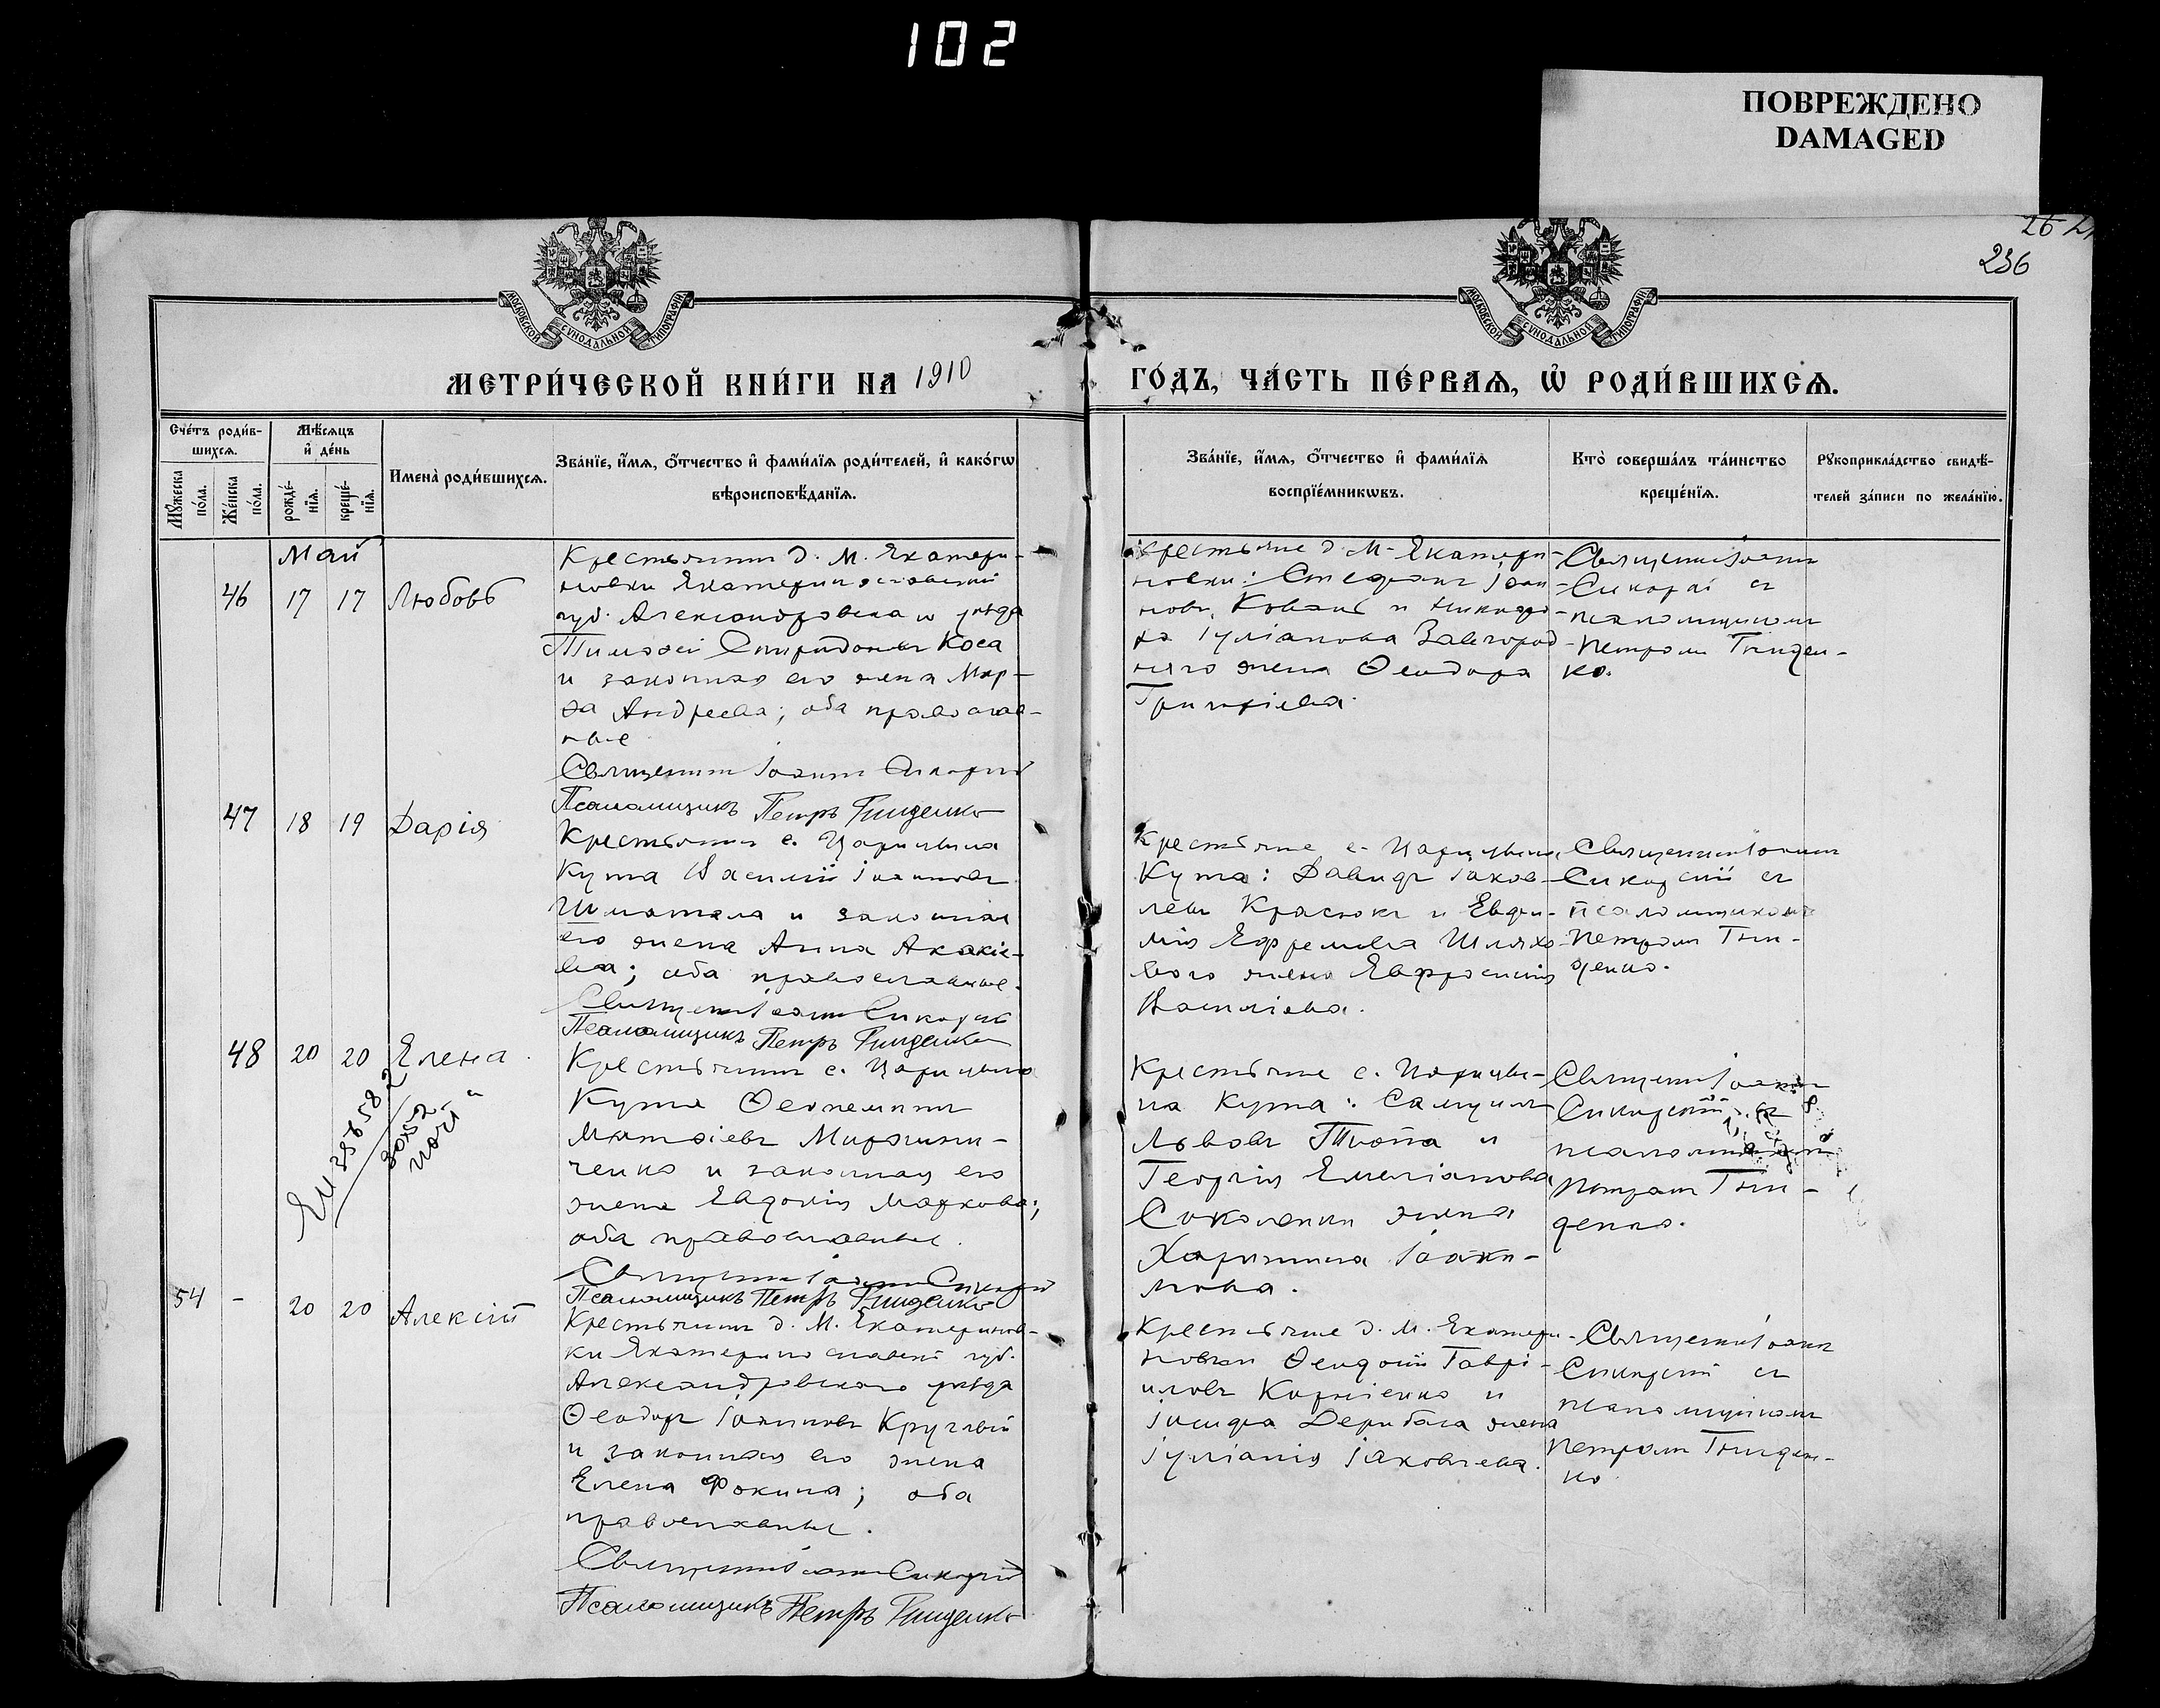 102
ПОВРЕЖДЕНО
DAMAGED
236
МОСКОВСКОЙ СѴНОДАЛЬНОЙ ТИПОГРАФІИ
МОСКОВСКОЙ СѴНОДАЛЬНОЙ ТИПОГРАФІИ
МЕТРИ́ЧЕСКОЙ КНИ́ГИ НА 1910
ГО́ДЪ, ЧА́СТЬ ПЕ́РВАѦ, Ѡ҆ РОДИ́ВШИХСѦ.
Сче́тъ роди́в-
шихсѧ.
Мѣ́сѧцъ
и҆ де́нь
Мꙋ́жеска
по́ла.
Же́нска
по́ла.
рожде́-
нїѧ.
креще́-
нїѧ.
Имена̀ роди́вшихсѧ.
Зва́нїе, и҆́мѧ, ѻ҆́тчество и҆ фами́лїѧ роди́телей, и҆ како́гѡ
вѣроисповѣ́данїѧ.
Зва́нїе, и҆́мѧ, ѻ҆́тчество и҆ фами́лїѧ
воспрїе́мникѡвъ.
Кто̀ соверша́лъ та́инство
креще́нїѧ.
Рꙋкоприкла́дство свидѣ́-
телей за́писи по жела́нїю.
Май
46 17 17 Любовь
Крестьянин д. М. Екатери-
новки Екатеринославской
губ. Александровскаго уѣзда
Тимоѳей Спиридонов Коса
и законная его жена Мар-
ѳа Андреева; оба православ-
ные
Священник Іоанн Сикорскій
Псаломщикъ Петръ Гниденко
Крестьяне д. М. Екатери-
новки: Стефан Іоан-
нов Коваль и Никифо-
ра Іуліанова Завгород-
няго жена Ѳеодора
Григоріева.
Священник Іоанн
Сикорскій с
псаломщиком
Петром Гниден-
ко.
47 18 19 Дарія
Крестьянин с. Царицына
Кута Василій Іоаннов
Шматала и законная
его жена Анна Акакіе-
ва; оба православные.
Священник Іоанн Сикорскій
Псаломщикъ Петръ Гниденко
Крестьяне с. Царицына
Кута: Давид Іаков-
лев Красюк и Евфи-
мія Ефремова Шляхо-
вого жена Евфросинія
Василіева.
Священник Іоанн
Сикорскій с
псаломщиком
Петром Гни-
денко.
48 20 20 Елена
Крестьянин с. Царицына
Кута Ѳеопемпт
Матѳіев Мирошни-
ченко и законная его
жена Евдокія Маркова;
оба православные.
Священник Іоанн Сикорскій
Псаломщикъ Петръ Гниденко
Крестьяне с. Царицы-
на Кута: Самуил
Львов и
Георгія Емеліанова
Соколенки жена
Харитина Іоаки-
мова.
Священник Іоанн
Сикорскій с
псаломщиком
Петром Гни-
денко.
54 - 20 20 Алексій
Крестьянин д. М. Екатеринов-
ки Екатеринославской губ.
Александровскаго уѣзда
Ѳеодор Іоаннов Круглый
и законная его жена
Елена Фокина; оба
православные.
Священник Іоанн Сикорскій
Псаломщикъ Петръ Гниденко
Крестьяне д. М. Екатери-
новки Ѳеодосій Гаврі-
илов Корніенко и
Іосифа Дерибаса жена
Іуліанія Іаковлева.
Священник Іоанн
Сикорскій с
псаломщиком
Петром Гниден-
ко